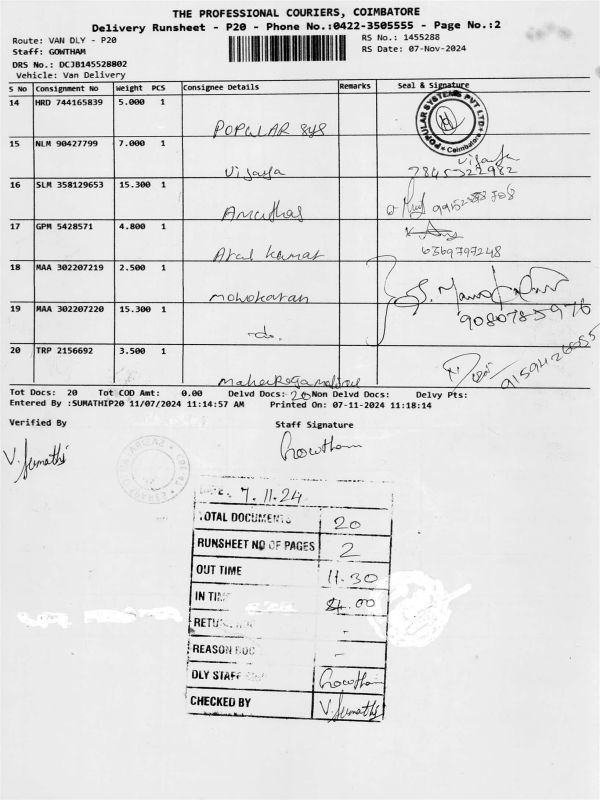 THE PROFESSIONAL COURIERS, COIMBATORE
Delivery Runsheet - P20 - Phone No.:0422-3505555 - Page No.:2
Route: VAN DLY - P20
RS No.: 1455288
Staff: GOWTHAM
RS Date: 07-Nov-2024
DRS No.: DCJB145528802
Vehicle: Van Delivery
S No Consignment No Weight PCS Consignee Details Remarks Seal & Signature
14 HRD 744165839 5.000 1 POPULAR sys
POPULAR SYSTEMS PVT LTD Coimbatore
15 NLM 90427799 7.000 1 Vijaya
Vijaya
7845322982
16 SLM 358129653 15.300 1
17 GPM 5428571 4.800 1 Arul kumar
6369797248
18 MAA 302207219 2.500 1
9080785976
19 MAA 302207220 15.300 1 -do.
20 TRP 2156692 3.500 1
Tot Docs: 20 Tot COD Amt: 0.00 Delvd Docs: 20 Non Delvd Docs: Delvy Pts:
Entered By :SUMATHIP20 11/07/2024 11:14:57 AM Printed On: 07-11-2024 11:18:14
Verified By
Staff Signature
V. Sumathi
Gowtham
DATE. 7.11.24
TOTAL DOCUMENTS 20
RUNSHEET NO OF PAGES 2
OUT TIME 11.30
IN TIME 4.00
RETU -
REASON DOC -
DLY STAFF Gowtham
CHECKED BY V. Sumathi